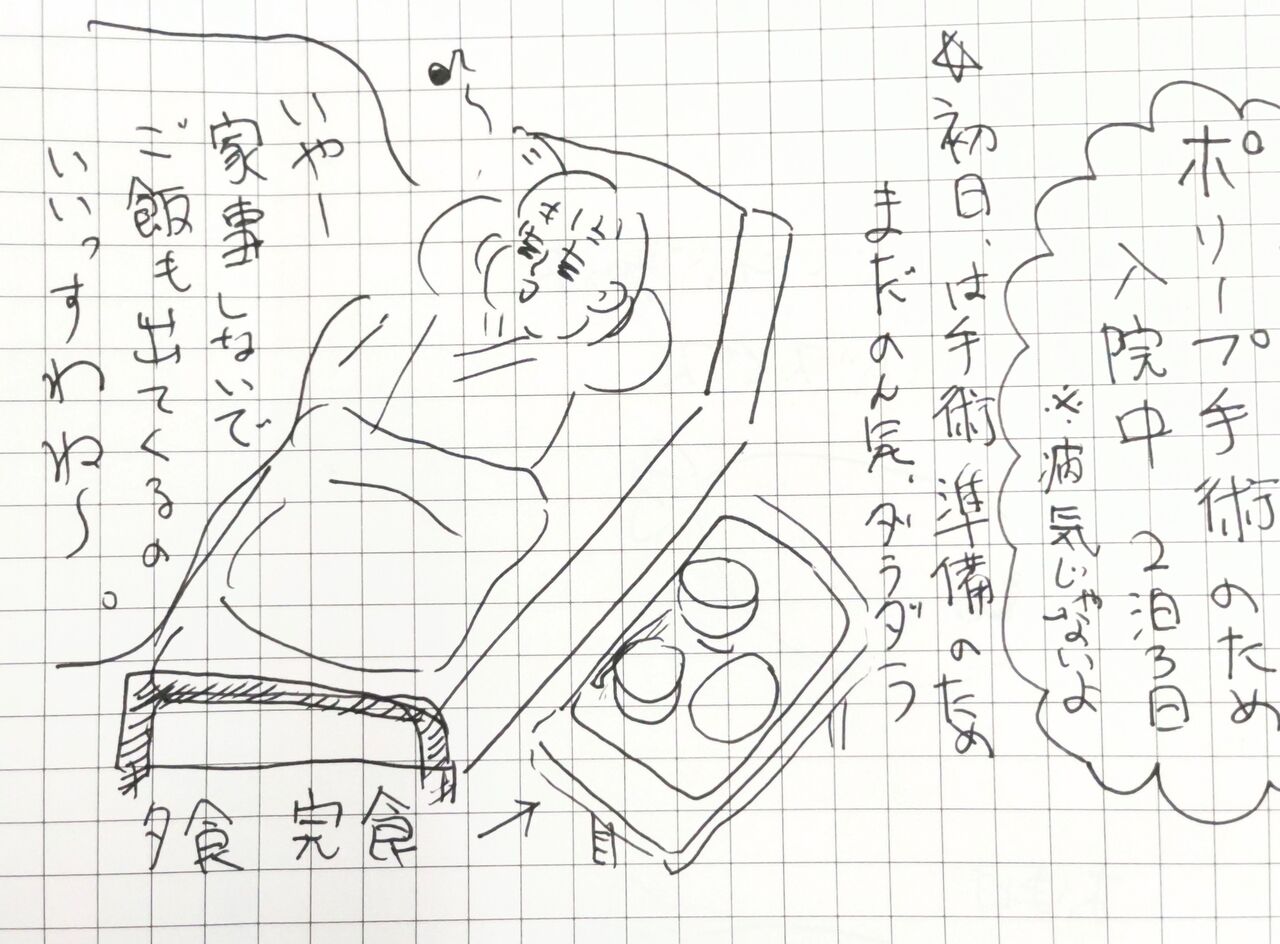 ポリープ手術のため
入院中 2泊3日
※病気じゃないよ
☆初日、は手術準備のため
まだのん気、ダラダラ
いやー
家事しないで
ご飯も出てくるの
いいっすわね〜
夕食 完食